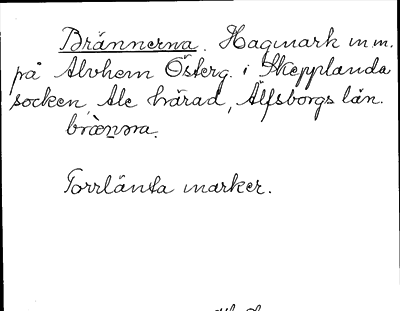 Brännerna. Hagmark m.m.
på Alvhem Österg. i Skepplanda
socken, Ale härad, Älfsborgs län.
brä̀nɳa.
Torrlänta marker.